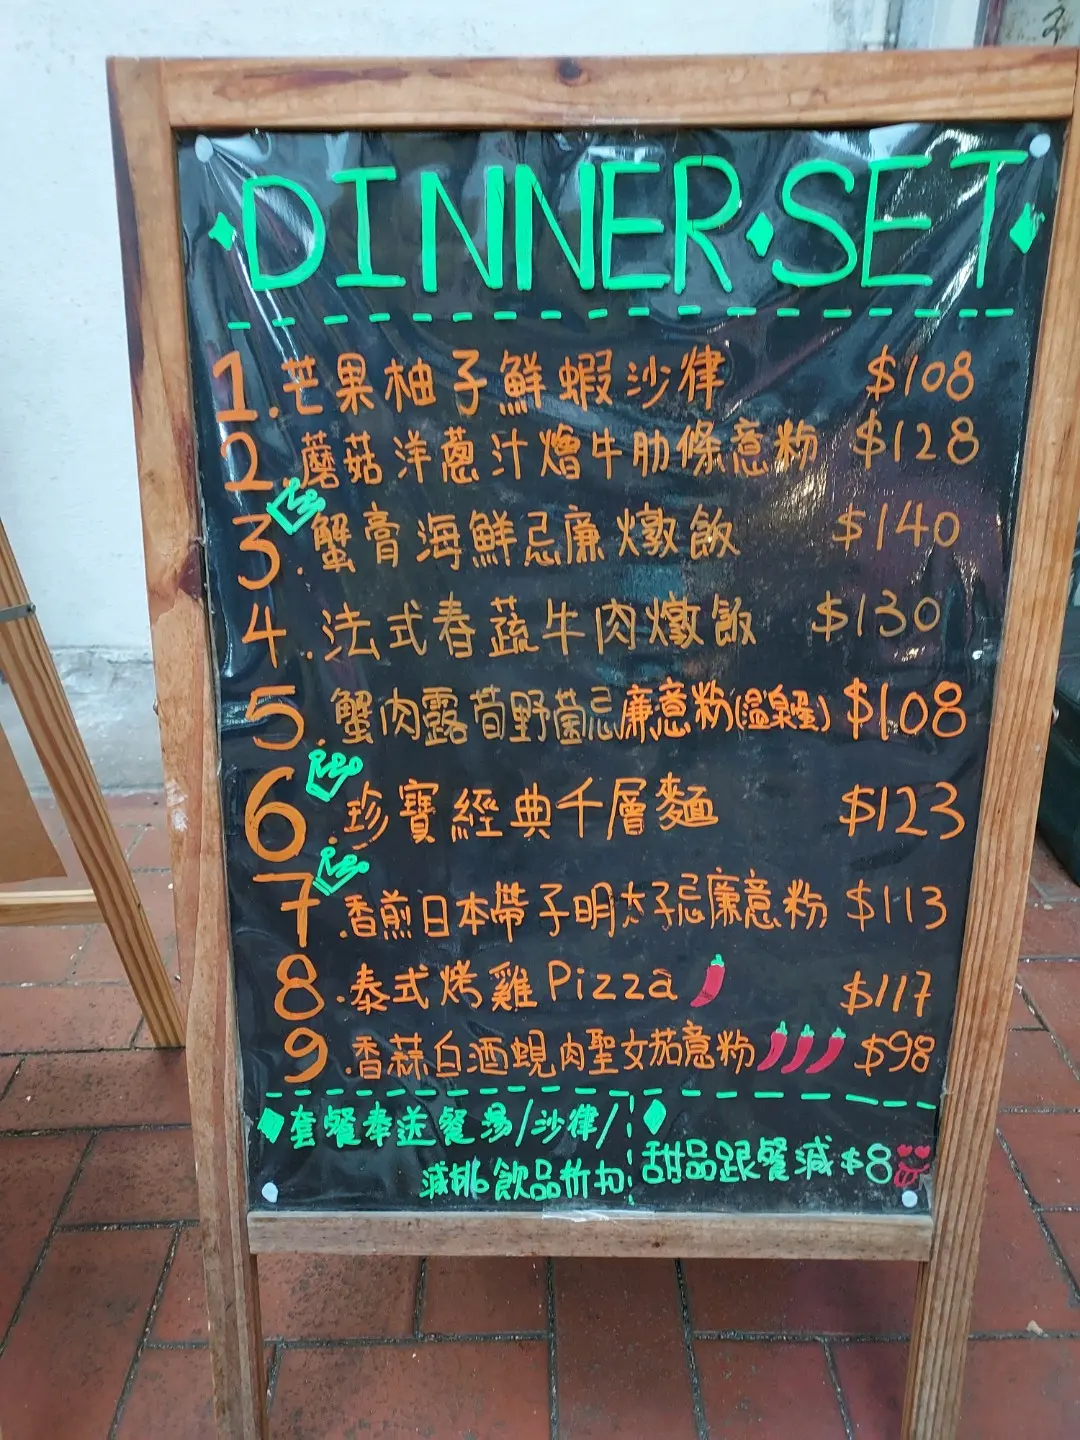 DINNER·SET
1.芒果柚子鮮蝦沙律 $108
2.蘑菇洋蔥汁燴牛肋條意粉 $128
3.蟹膏海鮮忌廉燉飯 $140
4.法式春蔬牛肉燉飯 $130
5.蟹肉露荀野菌忌廉意粉(溫泉蛋) $108
6.珍寶經典千層麵 $123
7.香煎日本帶子明太子忌廉意粉 $113
8.泰式烤雞Pizza $117
9.香蒜白酒蜆肉聖女茄意粉 $98
套餐奉送餐湯/沙律/
飲品折扣
甜品跟餐減$8